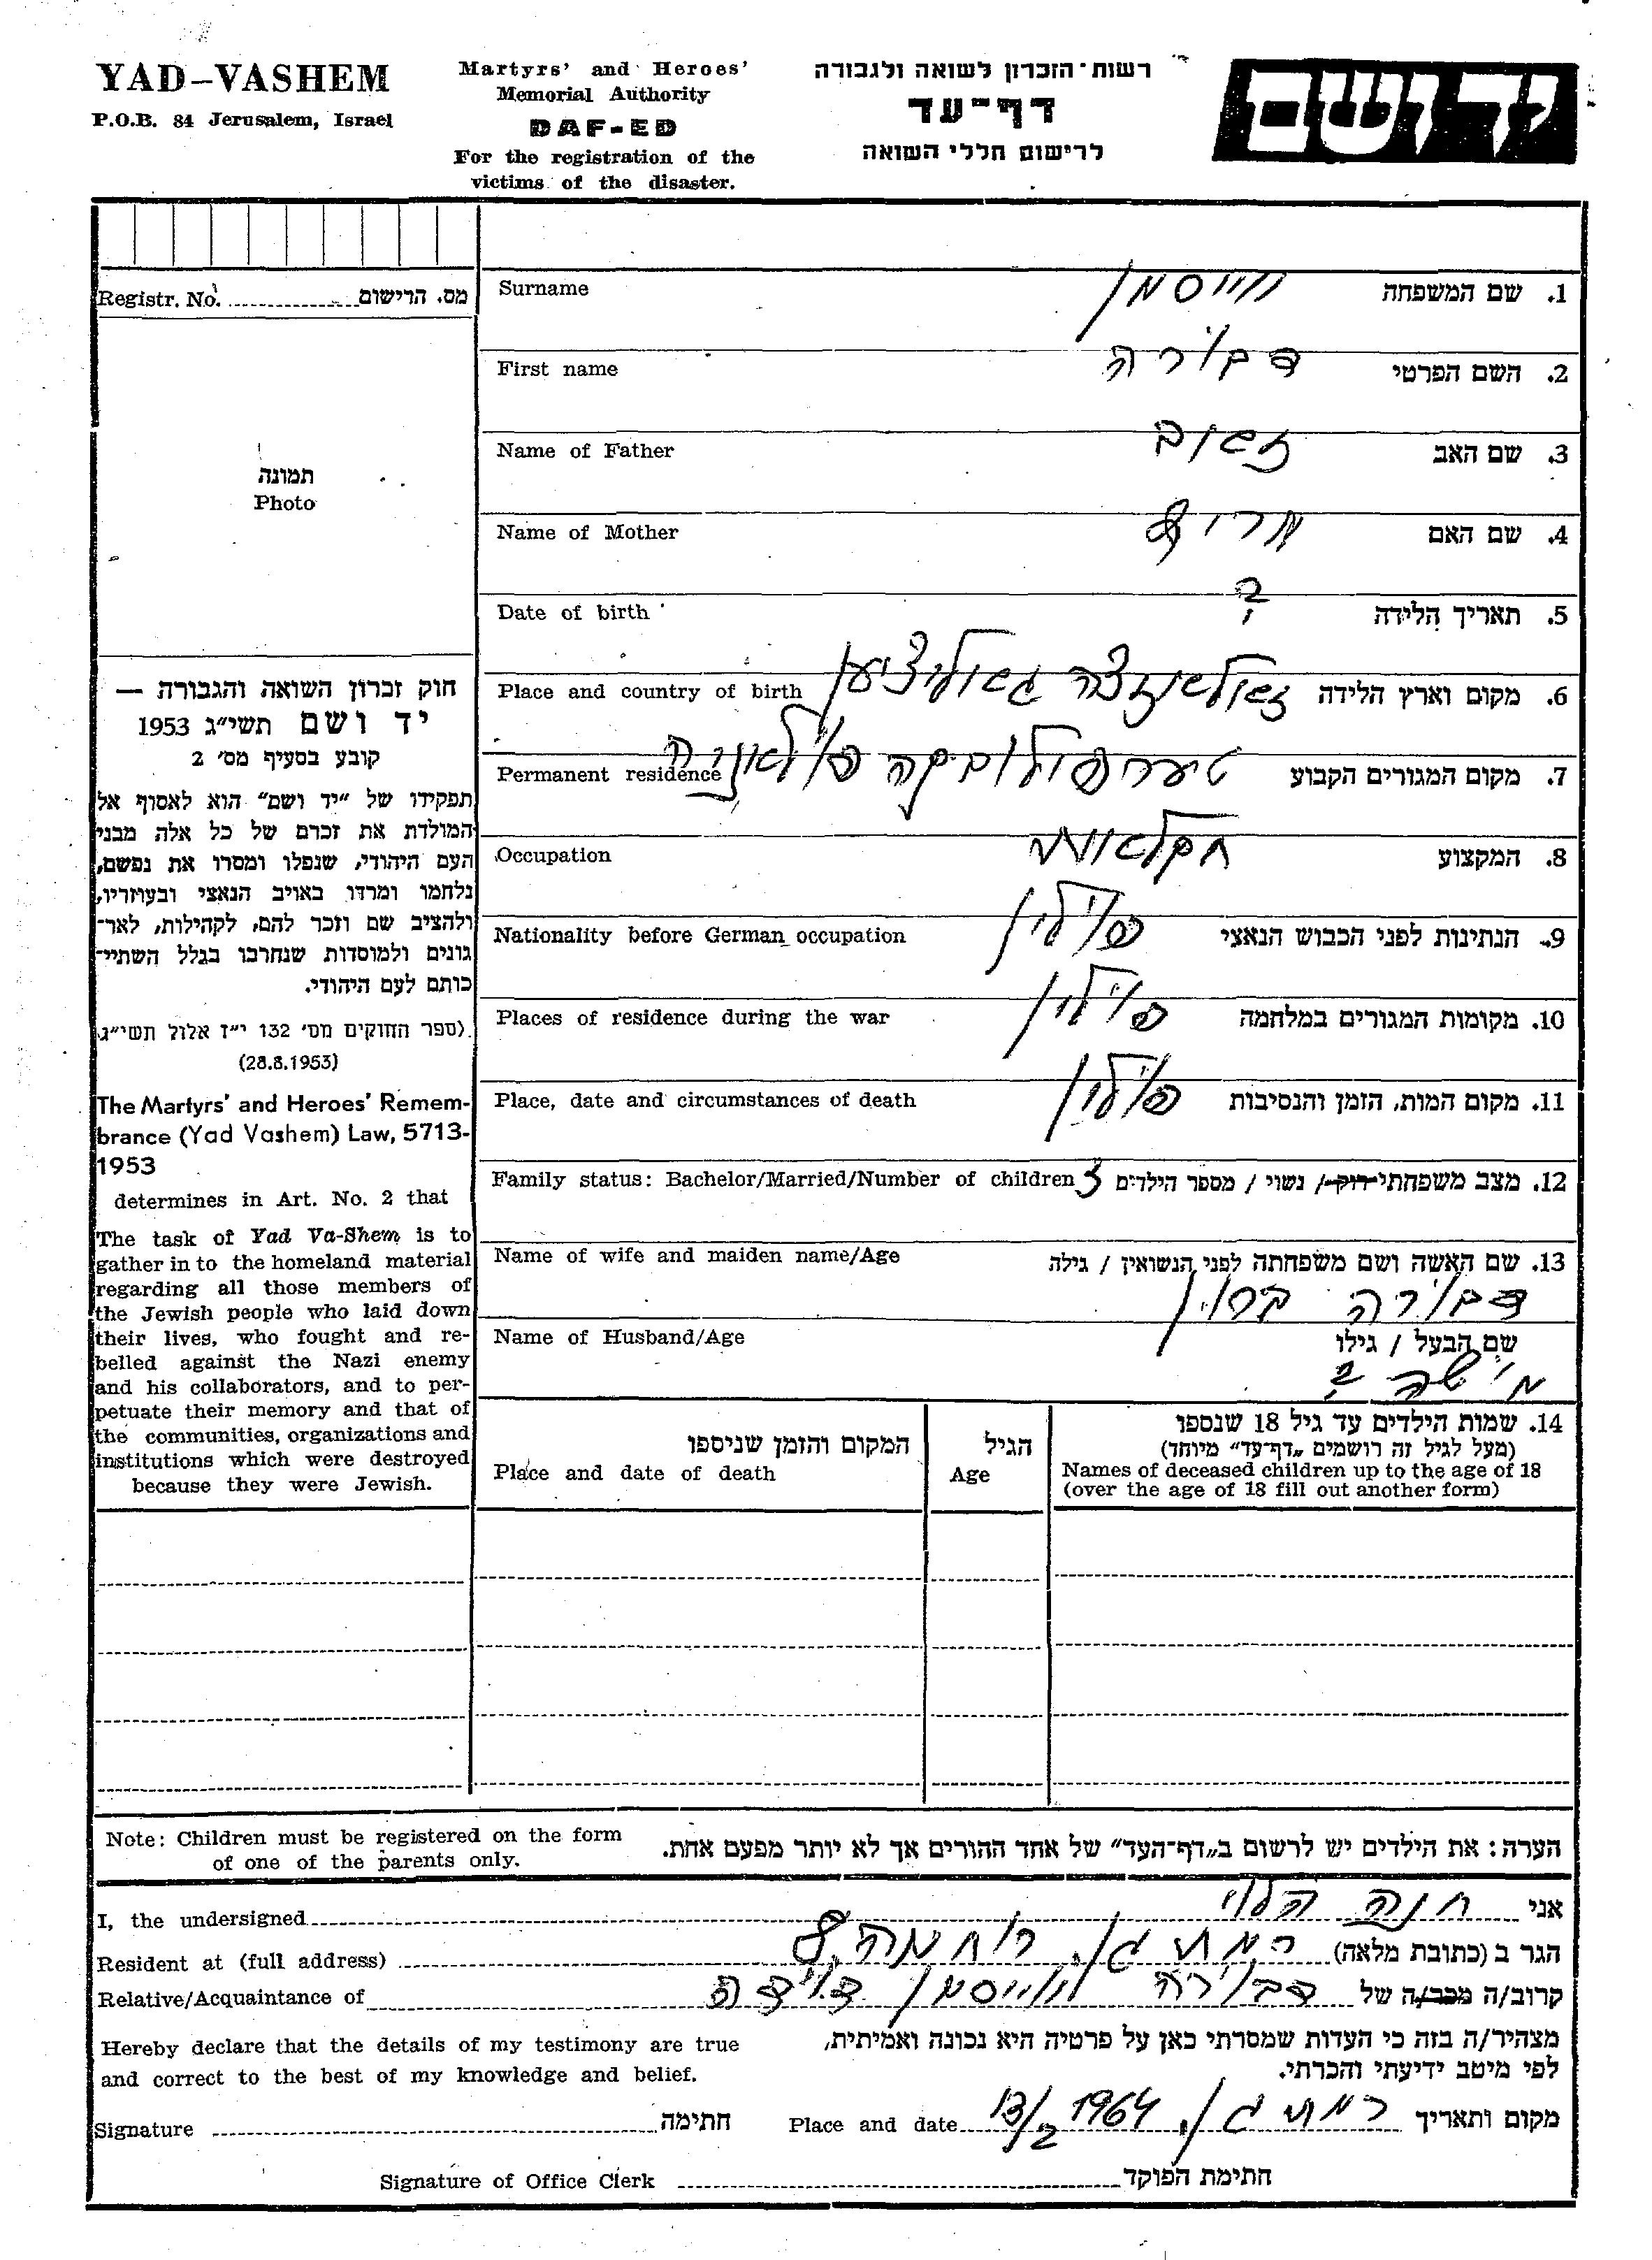 YAD-VASHEM
P.O.B. 84 Jerusalem, Israel
Martyrs' and Heroes'
Memorial Authority
DAF-ED
For the registration of the
victims of the disaster.
רשות-הזכרון לשואה ולגבורה
דף-עד
לרישום חללי השואה
יד ושם
Registr. No. מס. הרישום
תמונה
Photo
חוק זכרון השואה והגבורה —
יד ושם תשי״ג 1953
קובע בסעיף מס׳ 2
תפקידו של ״יד ושם״ הוא לאסוף אל
המולדת את זכרם של כל אלה מבני
העם היהודי, שנפלו ומסרו את נפשם,
נלחמו ומרדו באויב הנאצי ובעוזריו,
ולהציב שם וזכר להם, לקהילות, לאר-
גונים ולמוסדות שנחרבו בגלל השתיי-
כותם לעם היהודי.
(ספר החוקים מס׳ 132 י״ז אלול תשי״ג
(28.8.1953)
The Martyrs' and Heroes' Remem-
brance (Yad Vashem) Law, 5713-
1953
determines in Art. No. 2 that
The task of Yad Va-Shem is to
gather in to the homeland material
regarding all those members of
the Jewish people who laid down
their lives, who fought and re-
belled against the Nazi enemy
and his collaborators, and to per-
petuate their memory and that of
the communities, organizations and
institutions which were destroyed
because they were Jewish.
Surname ווייסמן 1. שם המשפחה
First name דבורה 2. השם הפרטי
Name of Father 3. שם האב
Name of Mother 4. שם האם
Date of birth ? 5. תאריך הלידה
Place and country of birth 6. מקום וארץ הלידה
Permanent residence 7. מקום המגורים הקבוע
Occupation חקלאות 8. המקצוע
Nationality before German occupation פולין 9. הנתינות לפני הכבוש הנאצי
Places of residence during the war פולין 10. מקומות המגורים במלחמה
Place, date and circumstances of death פולין 11. מקום המות, הזמן והנסיבות
Family status: Bachelor/Married/Number of children 3 12. מצב משפחתי רוק / נשוי / מספר הילדים
Name of wife and maiden name/Age 13. שם האשה ושם משפחתה לפני הנשואין / גילה
דבורה קרון
Name of Husband/Age שם הבעל / גילו
משה ?
14. שמות הילדים עד גיל 18 שנספו
(מעל לגיל זה רושמים „דף-עד״ מיוחד)
Names of deceased children up to the age of 18
(over the age of 18 fill out another form)
הגיל
Age
המקום והזמן שניספו
Place and date of death
Note: Children must be registered on the form
of one of the parents only.
הערה: את הילדים יש לרשום ב„דף-העד״ של אחד ההורים אך לא יותר מפעם אחת.
I, the undersigned חנה הלוי אני
Resident at (full address) רמת גן, רוחמה 8 הגר ב (כתובת מלאה)
Relative/Acquaintance of דבורה ווייסמן דודה קרוב/ה מכר/ה של
Hereby declare that the details of my testimony are true
and correct to the best of my knowledge and belief.
מצהיר/ה בזה כי העדות שמסרתי כאן על פרטיה היא נכונה ואמיתית,
לפי מיטב ידיעתי והכרתי.
Signature חתימה Place and date 13/2 1964 רמת גן, מקום ותאריך
Signature of Office Clerk חתימת הפוקד